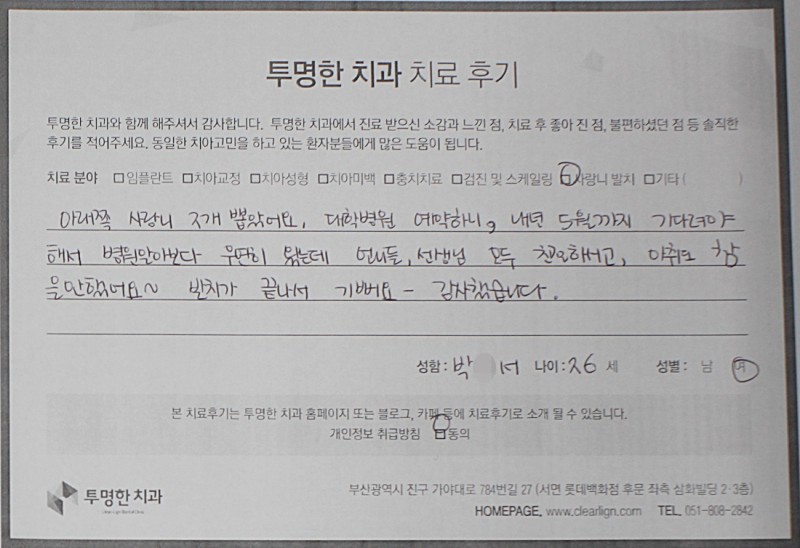 투명한 치과 치료 후기
투명한 치과와 함께 해주셔서 감사합니다. 투명한 치과에서 진료 받으신 소감과 느낀 점, 치료 후 좋아 진 점, 불편하셨던 점 등 솔직한
후기를 적어주세요. 동일한 치아고민을 하고 있는 환자분들에게 많은 도움이 됩니다.
치료 분야 □임플란트 □치아교정 □치아성형 □치아미백 □충치치료 □검진 및 스케일링 □사랑니 발치 □기타 ( )
아래쪽 사랑니 2개 뽑았어요, 대학병원 예약하니, 내년 5월까지 기다려야
해서 병원알아보다 우연히 왔는데 언니들, 선생님 모두 친절하시고, 마취도 참
을만했어요~ 발치가 끝나서 기뻐요 - 감사했습니다.
성함: 박 서 나이: 26 세 성별: 남 여
본 치료후기는 투명한 치과 홈페이지 또는 블로그, 카페 등에 치료후기로 소개 될 수 있습니다.
개인정보 취급방침 □동의
투명한 치과
부산광역시 진구 가야대로 784번길 27 (서면 롯데백화점 후문 좌측 삼화빌딩 2·3층)
HOMEPAGE. www.clearlign.com TEL. 051-808-2842